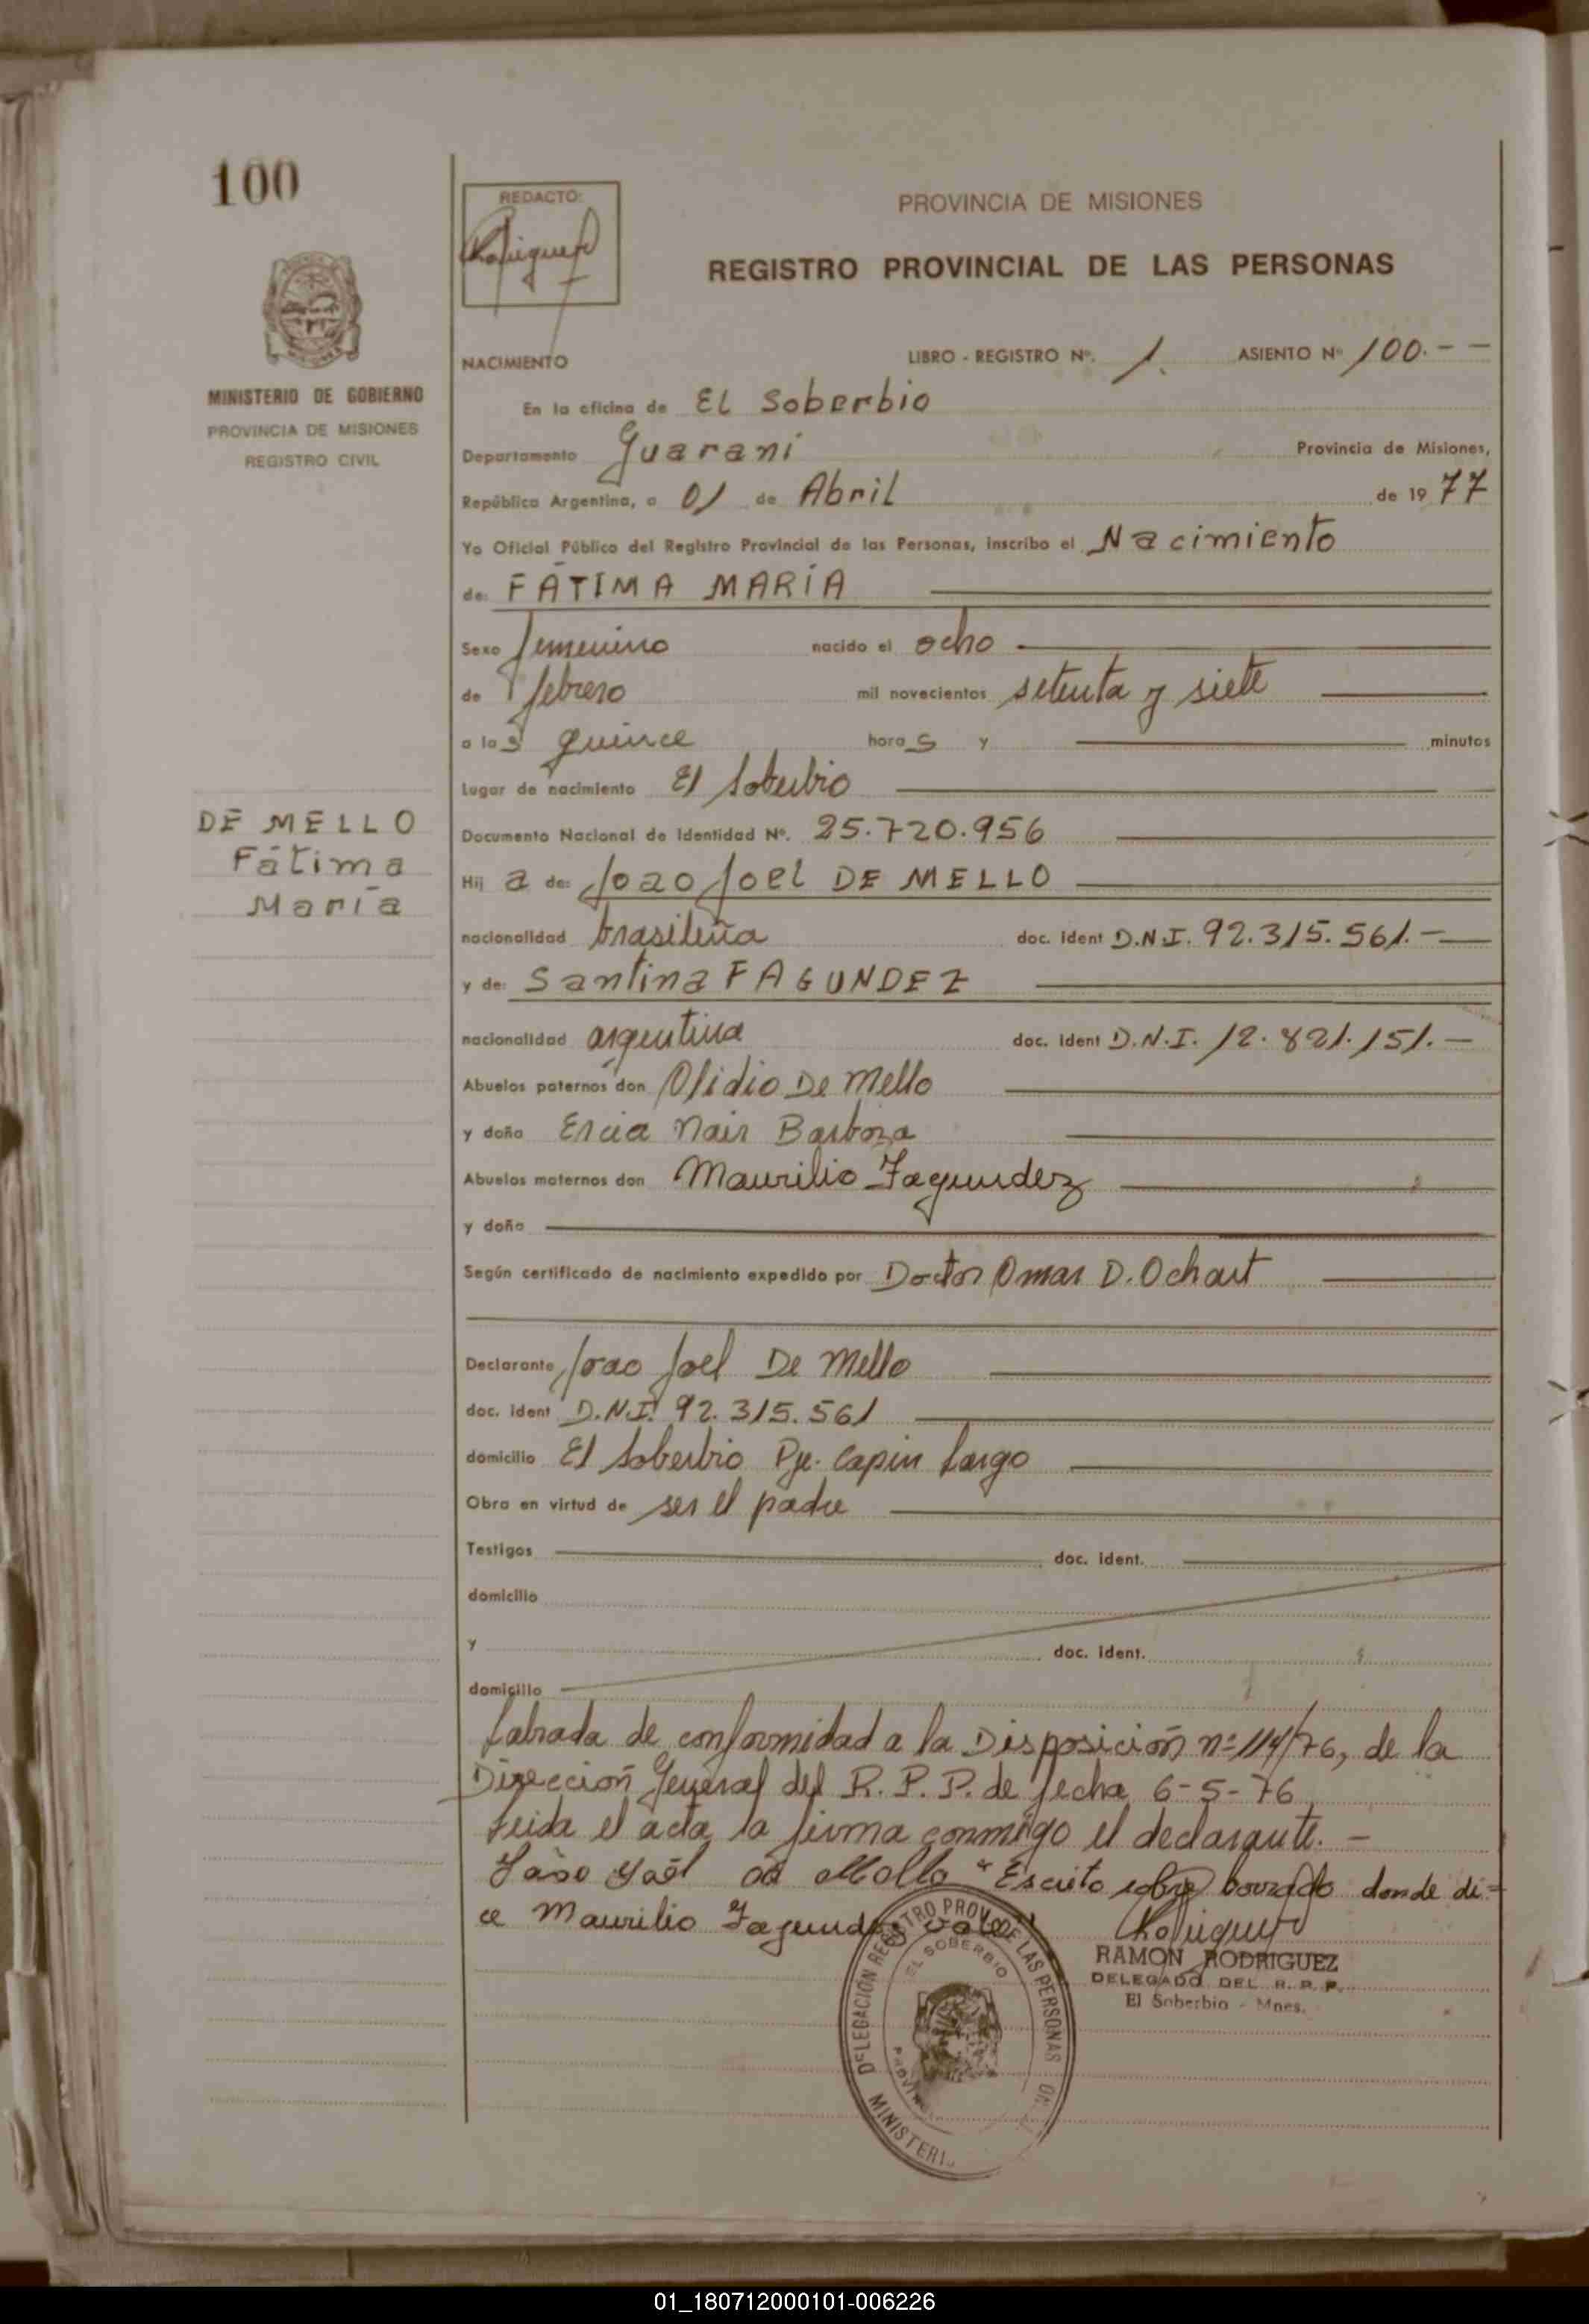 100
REDACTO:
PROVINCIA DE MISIONES
REGISTRO PROVINCIAL DE LAS PERSONAS
MINISTERIO DE GOBIERNO
PROVINCIA DE MISIONES
REGISTRO CIVIL
NACIMIENTO LIBRO - REGISTRO Nº. 1. ASIENTO Nº 100.- -
En la oficina de El Soberbio
Departamento Guaraní Provincia de Misiones,
República Argentina, a 01 de Abril de 19 77
Yo Oficial Público del Registro Provincial de las Personas, inscribo el Nacimiento
de: FÁTIMA MARÍA
Sexo femenino nacido el ocho
de febrero mil novecientos setenta y siete
a las quince horas y minutos
Lugar de nacimiento El Soberbio
DE MELLO
Fátima
María
Documento Nacional de Identidad Nº. 25.720.956
Hij a de: Joao Joel DE MELLO
nacionalidad brasileña doc. ident D.N.I. 92.315.561.-
y de: Santina FAGUNDEZ
nacionalidad argentina doc. ident D.N.I. 12.821.151.-
Abuelos paternos don Olidio De Mello
y doña Ercia Nair Barboza
Abuelos maternos don Maurilio Fagundez
y doña
Según certificado de nacimiento expedido por Doctor Omar D. Ochart
Declarante Joao Joel De Mello
doc. ident D.N.I. 92.315.561
domicilio El Soberbio Pje. Capin Largo
Obra en virtud de ser el padre
Testigos doc. ident.
domicilio
y doc. ident.
domicilio
Labrada de conformidad a la Disposición nº 114/76, de la
Dirección General del R.P.P. de fecha 6-5-76
Leida el acta la firma conmigo el declarante. -
Escrito sobre borrado donde di=
ce Maurilio Fagundez vale
RAMON RODRIGUEZ
DELEGADO DEL R. P. P.
El Soberbio - Mnes.
DELEGACIÓN REGISTRO PROV. DE LAS PERSONAS
EL SOBERBIO
01_180712000101-006226